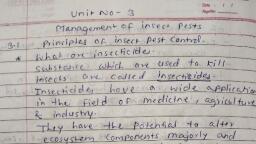 Unit No - 3
Management of insect pests
3.1 Principles of insect Pest control.
* What are insecticide.
Substance which are used to kill
insects are called insecticides.
Insecticides have a wide application
in the field of medicine, agriculture
& industry.
They have the potential to alter
ecosystem components majorly and